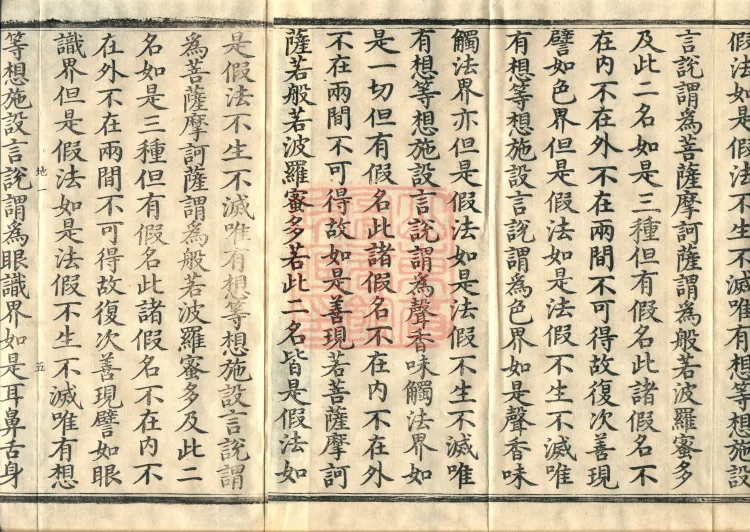 假法如是假法不生不滅唯有想等想施設
言說謂為菩薩摩訶薩謂為般若波羅蜜多
及此二名如是三種但有假名此諸假名不
在內不在外不在兩間不可得故復次善現
譬如色界但是假法如是法假不生不滅唯
有想等想施設言說謂為色界如是聲香味
觸法界亦但是假法如是法假不生不滅唯
有想等想施設言說謂為聲香味觸法界如
是一切但有假名此諸假名不在內不在外
不在兩間不可得故如是善現若菩薩摩訶
薩若般若波羅蜜多若此二名皆是假法如
是假法不生不滅唯有想等想施設言說謂
為菩薩摩訶薩謂為般若波羅蜜多及此二
名如是三種但有假名此諸假名不在內不
在外不在兩間不可得故復次善現譬如眼
識界但是假法如是法假不生不滅唯有想
地一 五
等想施設言說謂為眼識界如是耳鼻舌身